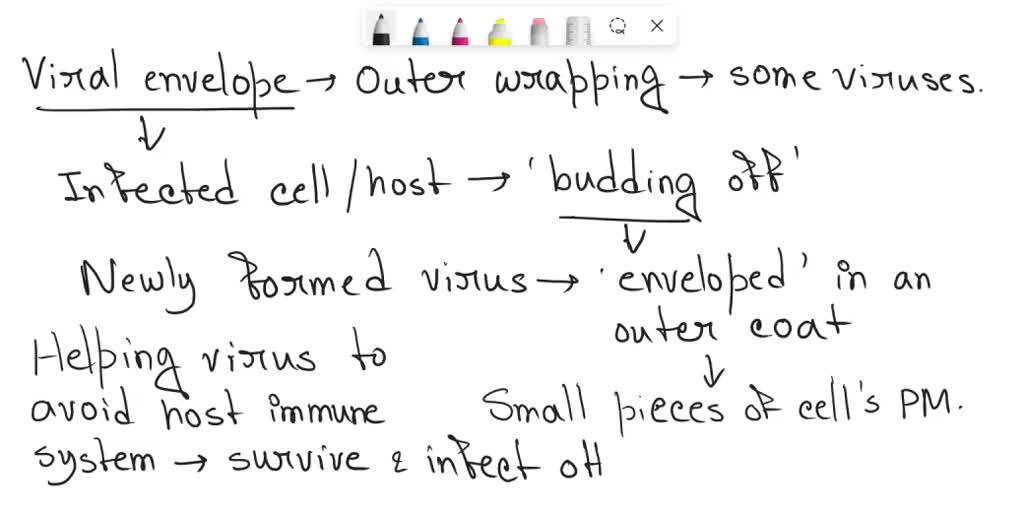 Viral envelope → Outer wrapping → some viruses.
↓
Infected cell/host → 'budding off'
↓
Newly formed virus → 'enveloped' in an
outer coat
↓
Helping virus to
avoid host immune
Small pieces of cell's PM.
system → survive & infect ot